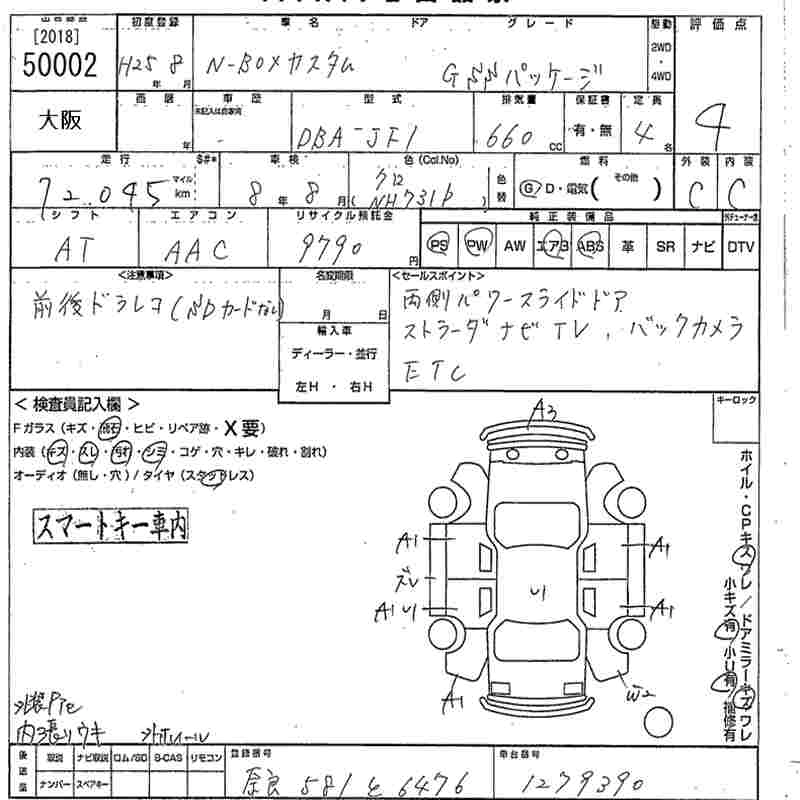 [2018]
50002
大阪
初度登録 車名 ドア グレード 駆動 評価点
H25 8 N-BOXカスタム G パッケージ 2WD・4WD
年 月
車歴 型式 排気量 保証書 定員
未記入は自家用
年 DBA-JF1 660 cc 有・無 4名 4
走行 $#* 車検 色(Col.No) 燃料 外装 内装
72,045 マイル km 8年 8月 (NH731P) 色替 G D・電気( その他 ) C C
シフト エアコン リサイクル預託金 純正装備品
AT AAC 9790円 PS PW AW エアB ABS 革 SR ナビ DTV
<注意事項> 名変期限 <セールスポイント>
前後ドラレコ(SDカードなし) 月 日 両側パワースライドドア
輸入車 ストラーダナビTV、バックカメラ
ディーラー・並行 ETC
左H・右H
<検査員記入欄> キーロック
Fガラス(キズ・飛石・ヒビ・リペア跡・X要)
内装(キズ・スレ・汚れ・シミ・コゲ・穴・キレ・破れ・割れ)
オーディオ(無し・穴)/タイヤ(スタッドレス)
スマートキー車内
A3
A1 A1
ズレ U1
A1 U1 A1
A1 W2
ホイル・CPキズワレ/ドアミラーキズワレ
小キズ有/小U有/補修有
内張りウキ
後送量 取説 ナビ取説 ロム/SD B-CAS リモコン 登録番号 車台番号
ナンバー スペアキー 奈良 581 と 6476 1279390